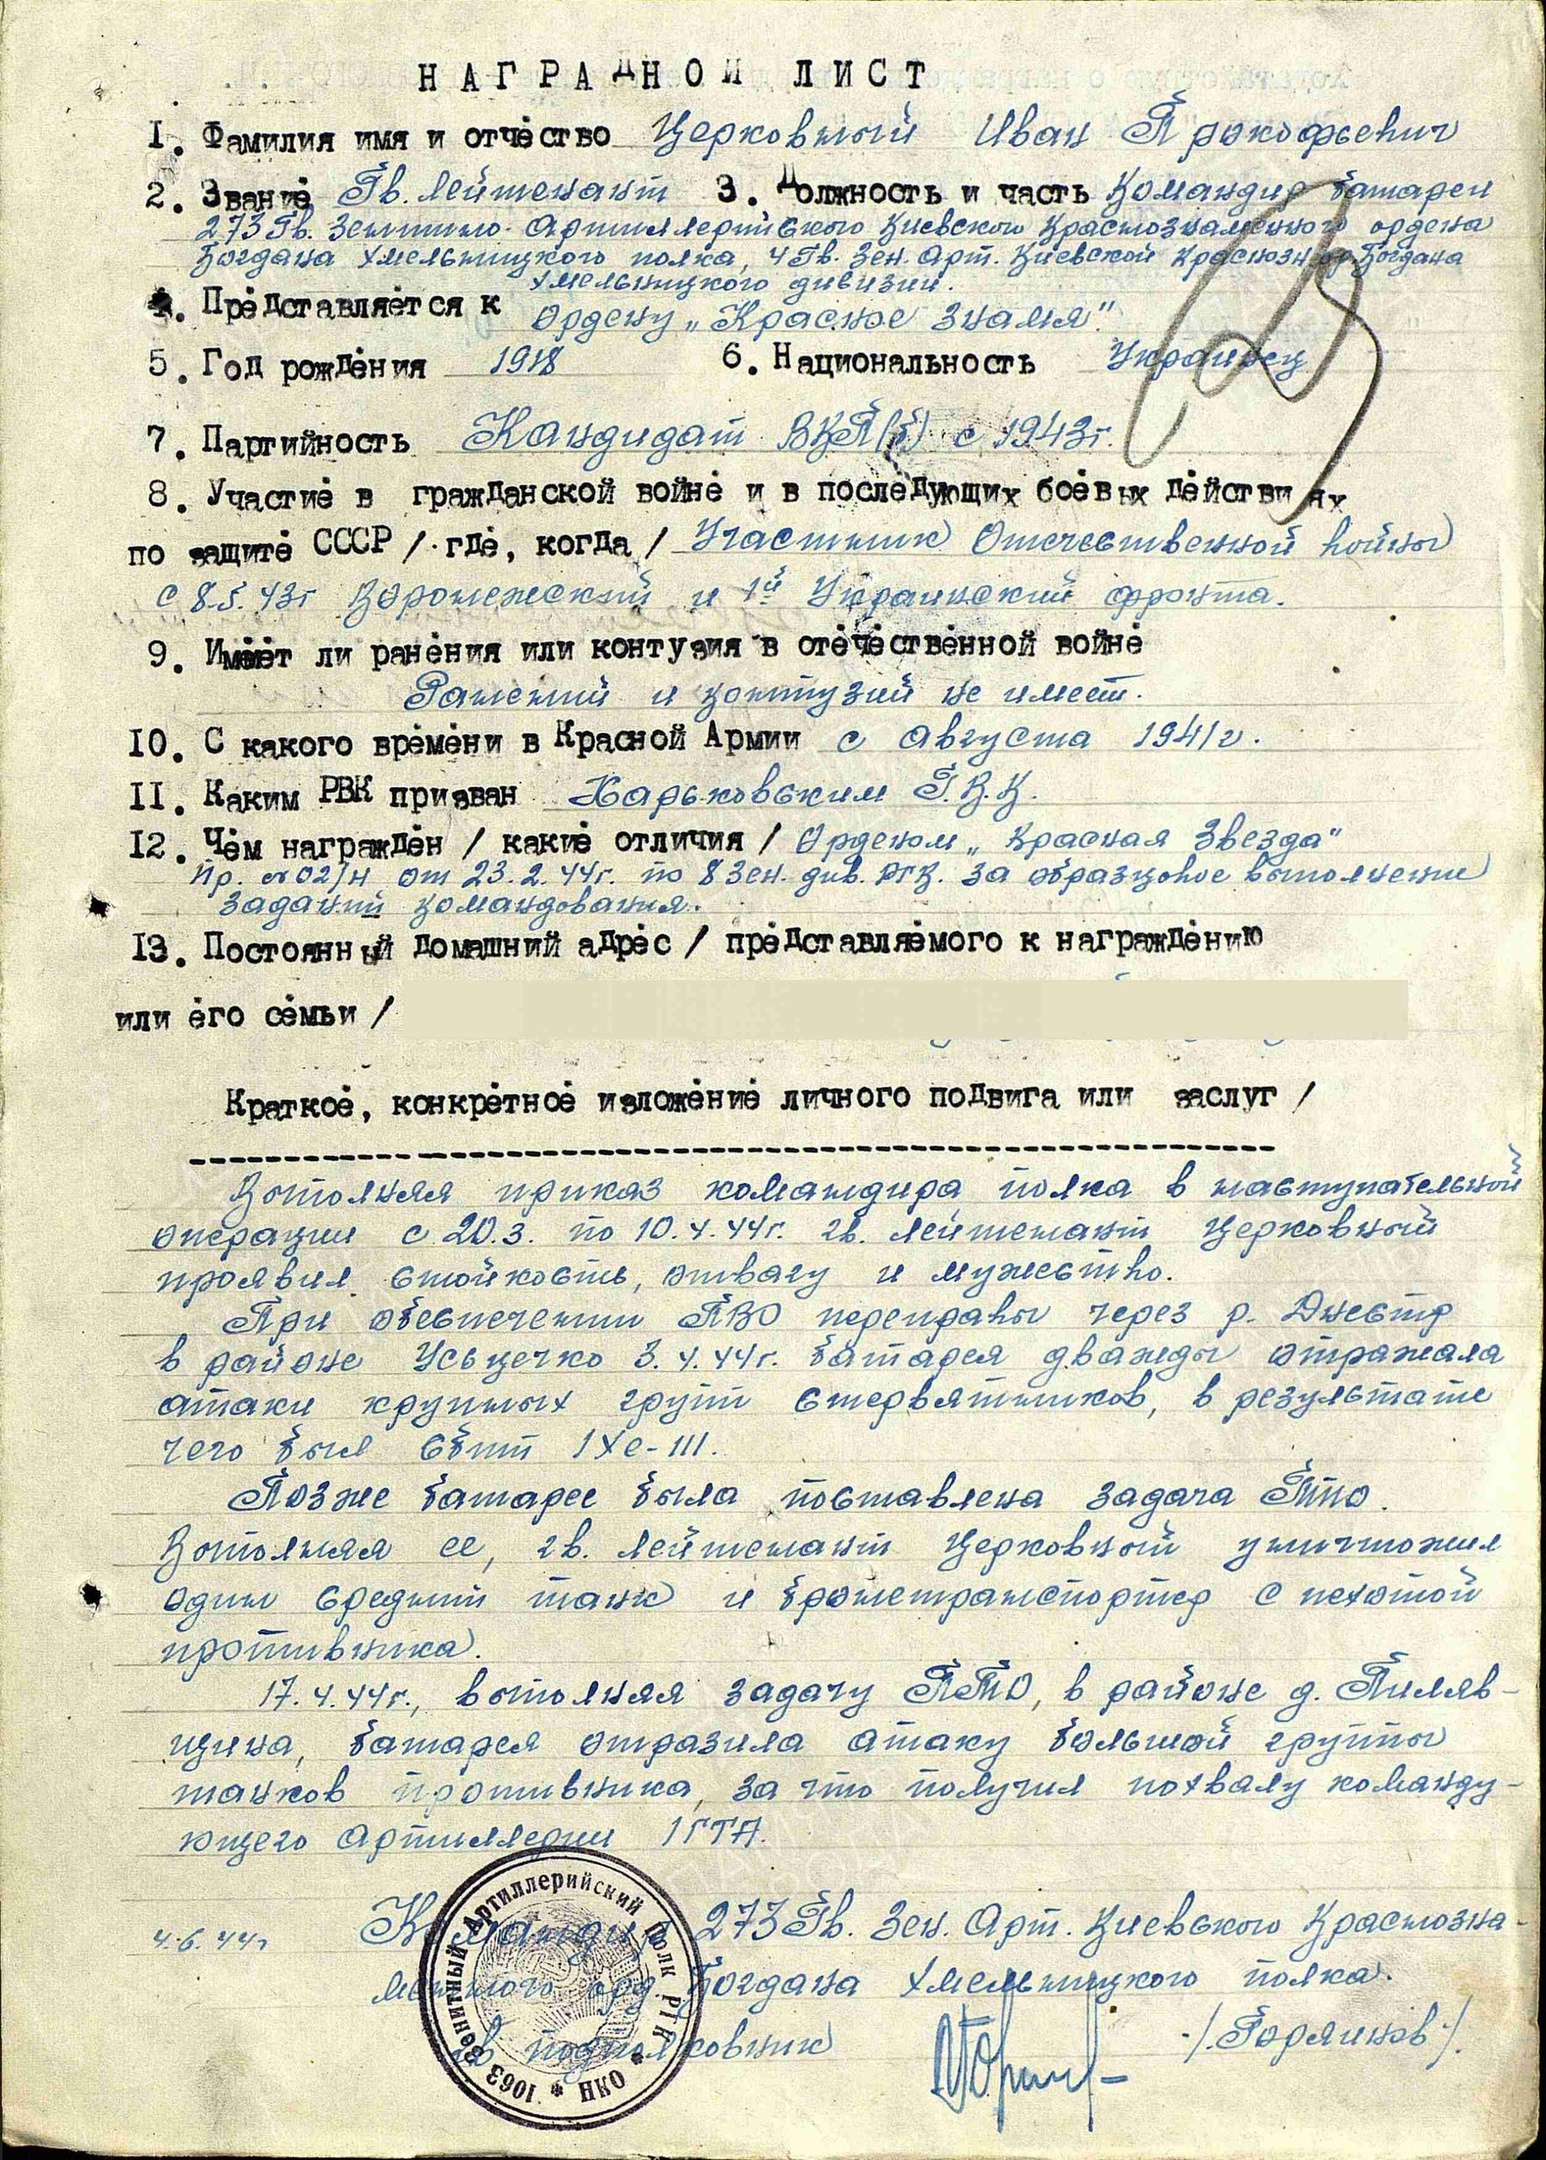 НАГРАДНОЙ ЛИСТ
1. Фамилия имя и отчество Церковный Иван Прокофьевич
2. Звание Гв. лейтенант 3. Должность и часть Командир батареи
273 Гв. Зенитно-Артиллерийского Киевского Краснознаменного ордена
Богдана Хмельницкого полка, 4 Гв. Зен. Арт. Киевской Краснозн. ор. Богдана
Хмельницкого дивизии.
4. Представляется к Ордену „Красное Знамя".
5. Год рождения 1918 6. Национальность Украинец
7. Партийность Кандидат ВКП(б) с 1943г.
8. Участие в гражданской войне и в последующих боевых действиях
по защите СССР /где, когда/ Участник Отечественной войны
с 8.5.43г Воронежский и 1й Украинский фронта.
9. Имеет ли ранения или контузия в отечественной войне
Ранений и контузий не имеет.
10. С какого времени в Красной Армии с августа 1941г.
11. Каким РВК призван Харьковским Г.В.К.
12. Чем награжден /какие отличия/ Орденом „Красная Звезда"
Пр. № 02/н от 23.2.44г. по 8 Зен. див. РГК. за образцовое выполнение
заданий командования.
13. Постоянный домашний адрес /представляемого к награждению
или его семьи /
Краткое, конкретное изложение личного подвига или заслуг /
Выполняя приказ командира полка в наступательной
операции с 20.3. по 10.4.44г. гв. лейтенант Церковный
проявил стойкость, отвагу и мужество.
При обеспечении ПВО переправы через р. Днестр
в районе Усьцечко 3.4.44г. батарея дважды отражала
атаки крупных групп стервятников, в результате
чего был сбит 1 Хе-111.
Позже батарее была поставлена задача ПТО.
Выполняя ее, гв. лейтенант Церковный уничтожил
один средний танк и бронетранспортер с пехотой
противника.
17.4.44г., выполняя задачу ПТО, в районе д. Пиляв-
щина, батарея отразила атаку большой группы
танков противника, за что получил похвалу команду-
ющего Артиллерии 1 ГТА.
4.6.44г Командир 273 Гв. Зен. Арт. Киевского Краснозна-
менного орд. Богдана Хмельницкого полка.
гв подполковник /Горлинов/.
1063 Зенитный Артиллерийский Полк РГК * НКО *